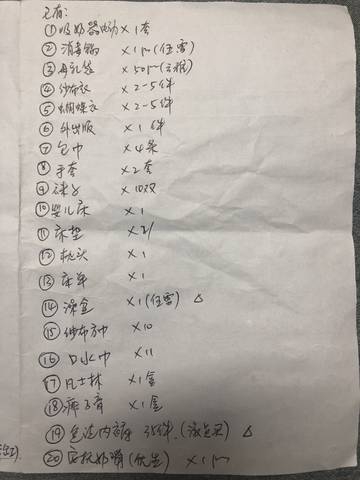 已有:
①吸奶器电动 ×1套
②消毒锅 ×1个(任雪)
③母乳袋 ×50个
④纱布衣 ×2-5件
⑤蝴蝶衣 ×2-5件
⑥外出服 ×1件
⑦包巾 ×4条
⑧手套 ×2套
⑨袜子 ×10双
⑩婴儿床 ×1
⑪床垫 ×2
⑫枕头 ×1
⑬床单 ×1
⑭澡盆 ×1(任雪) △
⑮纱布方巾 ×10
⑯口水巾 ×11
⑰凡士林 ×1盒
⑱痱子膏 ×1盒
⑲ 内裤 35件 △
⑳安抚奶嘴 ×1个